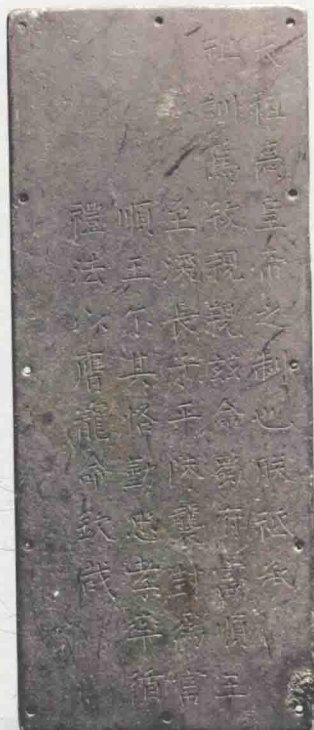 太祖高皇帝之制也朕祗承
祖訓篤敘親親茲命爾有高順王
至濬長子平陝襲封為管
順王尔其恪勤忠孝率循
禮法以膺寵命欽哉